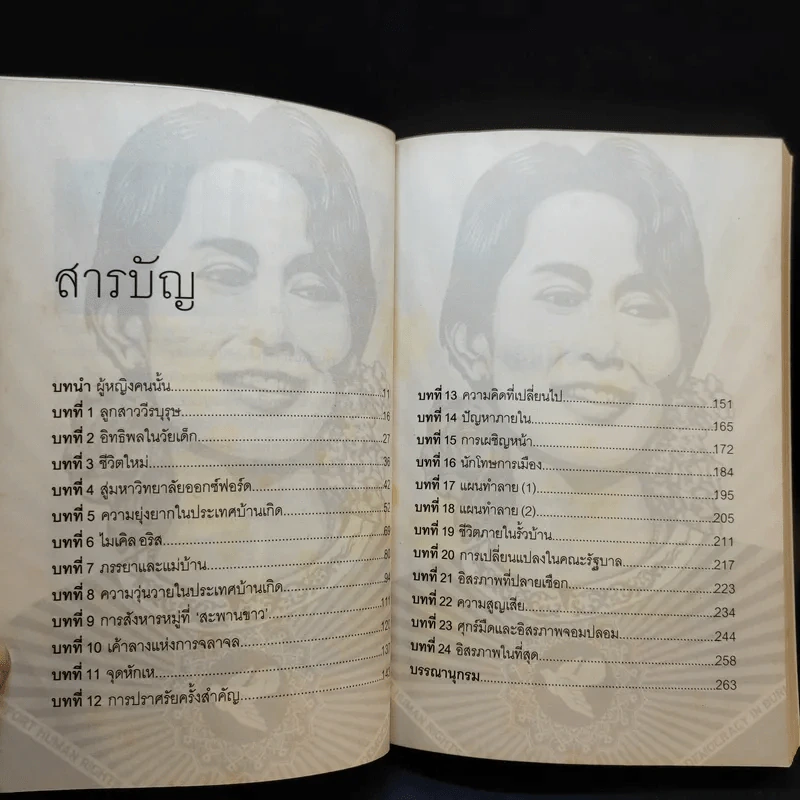 สารบัญ
บทนำ ผู้หญิงคนนั้น.....11
บทที่ 1 ลูกสาววีรบุรุษ.....16
บทที่ 2 อิทธิพลในวัยเด็ก.....27
บทที่ 3 ชีวิตใหม่.....36
บทที่ 4 สู่มหาวิทยาลัยออกซ์ฟอร์ด.....42
บทที่ 5 ความยุ่งยากในประเทศบ้านเกิด.....52
บทที่ 6 ไมเคิล อริส.....69
บทที่ 7 ภรรยาและแม่บ้าน.....80
บทที่ 8 ความวุ่นวายในประเทศบ้านเกิด.....94
บทที่ 9 การสังหารหมู่ที่ 'สะพานขาว'.....111
บทที่ 10 เค้าลางแห่งการจลาจล.....120
บทที่ 11 จุดหักเห.....137
บทที่ 12 การปราศรัยครั้งสำคัญ.....
บทที่ 13 ความคิดที่เปลี่ยนไป.....151
บทที่ 14 ปัญหาภายใน.....165
บทที่ 15 การเผชิญหน้า.....172
บทที่ 16 นักโทษการเมือง.....184
บทที่ 17 แผนทำลาย (1).....195
บทที่ 18 แผนทำลาย (2).....205
บทที่ 19 ชีวิตภายในรั้วบ้าน.....211
บทที่ 20 การเปลี่ยนแปลงในคณะรัฐบาล.....217
บทที่ 21 อิสรภาพที่ปลายเชือก.....223
บทที่ 22 ความสูญเสีย.....234
บทที่ 23 ศุกร์มืดและอิสรภาพจอมปลอม.....244
บทที่ 24 อิสรภาพในที่สุด.....258
บรรณานุกรม.....263
HUMAN RIGHT
DEMOCRACY IN BUR